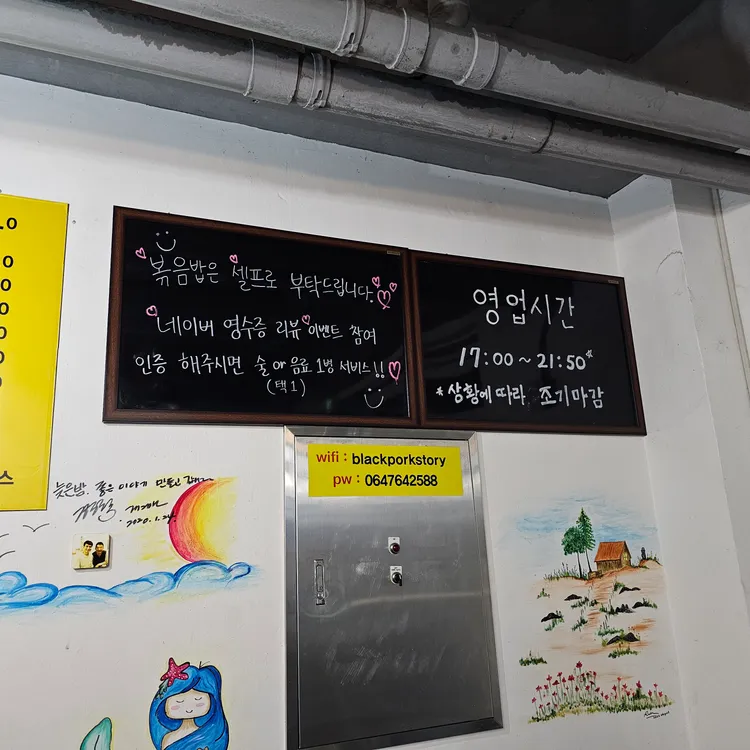 볶음밥은 셀프로 부탁드립니다.
네이버 영수증 리뷰 이벤트 참여
인증 해주시면 술 or 음료 1병 서비스!!
(택1)
영업시간
17:00 ~ 21:50
*상황에 따라 조기마감
wifi : blackporkstory
pw : 0647642588
늦은밤. 좋은 이야기 만들고
2020.1.24.
스